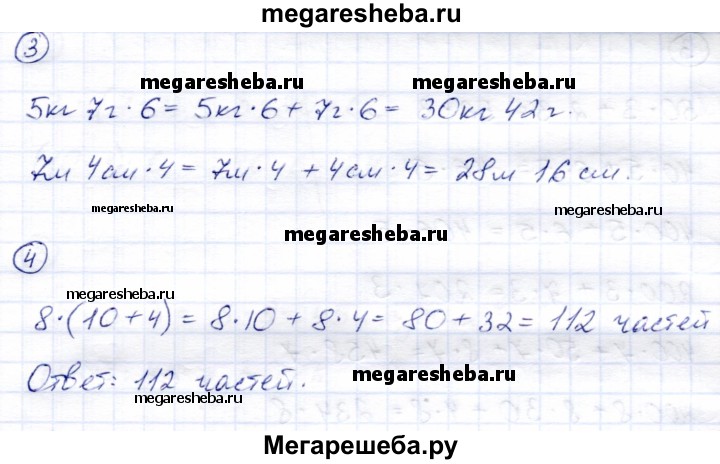 megaresheba.ru
3
megaresheba.ru megaresheba.ru
5кг 7г · 6 = 5кг · 6 + 7г · 6 = 30кг 42г.
7м 4см · 4 = 7м · 4 + 4см · 4 = 28м 16см.
megaresheba.ru megaresheba.ru
megaresheba.ru
4
megaresheba.ru
8 · (10 + 4) = 8 · 10 + 8 · 4 = 80 + 32 = 112 частей
megaresheba.ru
Ответ: 112 частей.
megaresheba.ru
Мегарешеба.ру